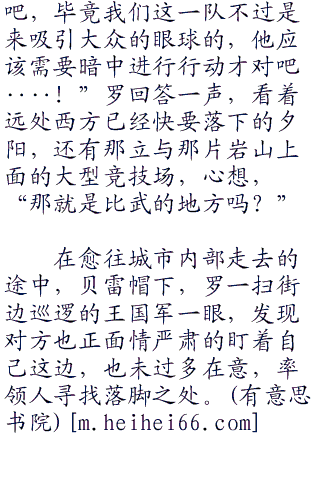 吧，毕竟我们这一队不过是
来吸引大众的眼球的，他应
该需要暗中进行行动才对吧
····！”罗回答一声，看着
远处西方已经快要落下的夕
阳，还有那立与那片岩山上
面的大型竞技场，心想，
“那就是比武的地方吗？”
在愈往城市内部走去的
途中，贝雷帽下，罗一扫街
边巡逻的王国军一眼，发现
对方也正面情严肃的盯着自
己这边，也未过多在意，率
领人寻找落脚之处。(有意思
书院)[m.heihei66.com]